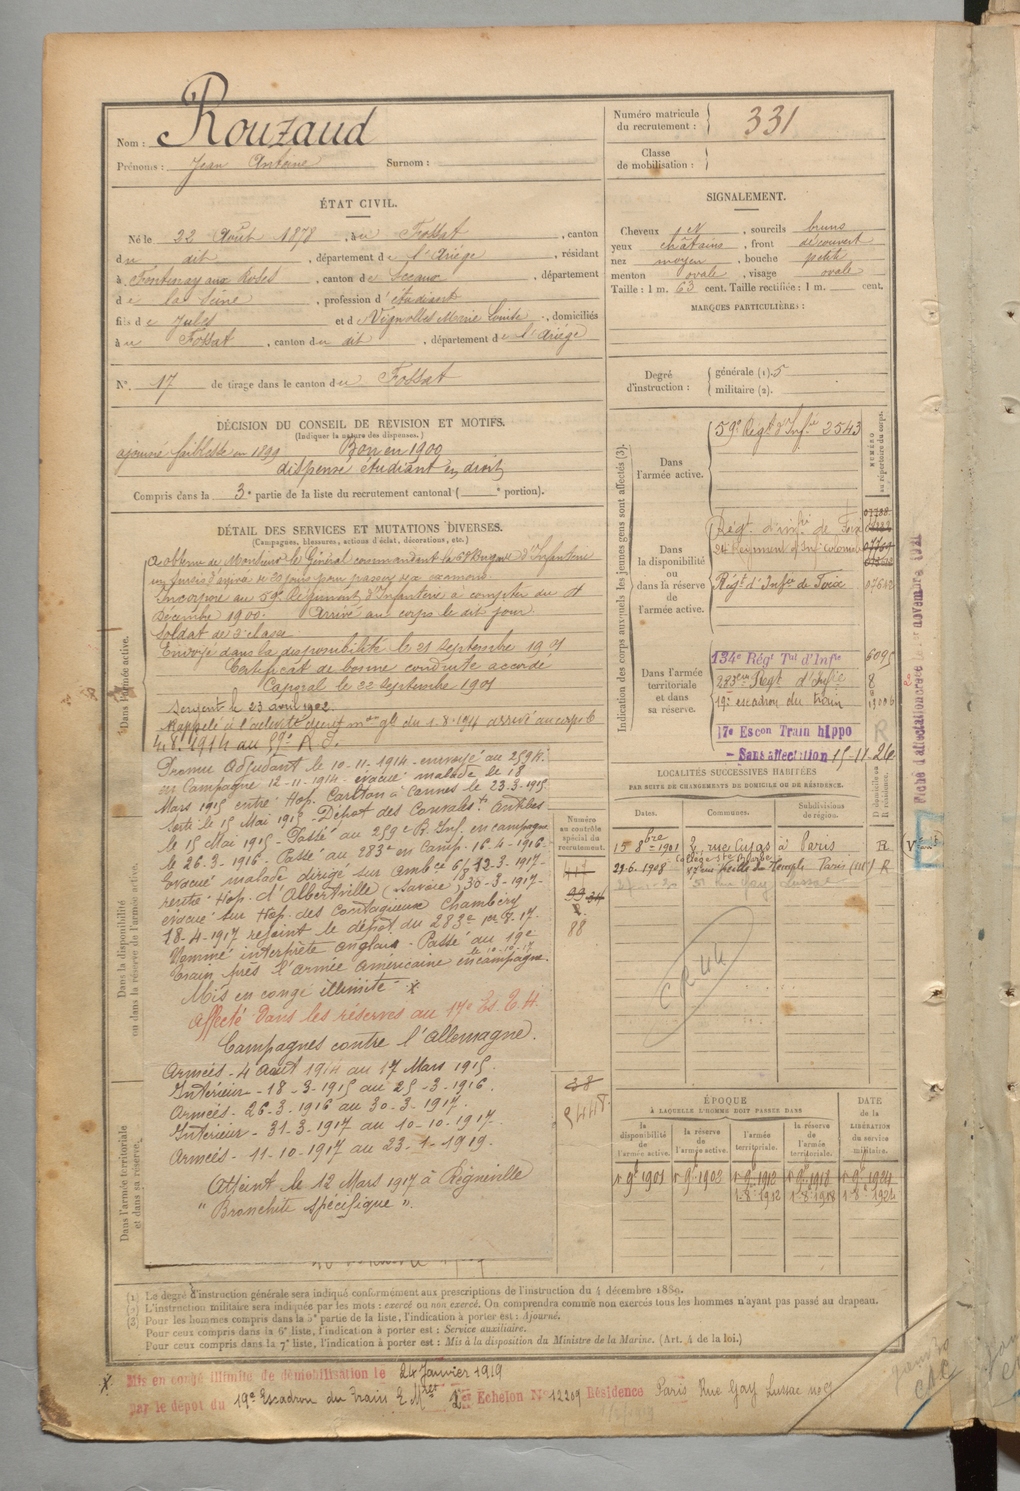 Nom : Rouzaud
Prénoms : Jean Antoine Surnom :
Numéro matricule du recrutement : 331
Classe de mobilisation :
ÉTAT CIVIL.
Né le 22 Août 1878, à u Fossat, canton
du dit, département de l'Ariège, résidant
à Fontenay aux Roses, canton de Sceaux, département
de la Seine, profession d'étudiant
fils de Jules et de Vignolles Marie Louise, domiciliés
à u Fossat, canton du dit, département de l'Ariège
N° 17 de tirage dans le canton du Fossat
SIGNALEMENT.
Cheveux N, sourcils bruns
yeux châtains, front découvert
nez moyen, bouche petite
menton ovale, visage ovale
Taille : 1 m. 63 cent. Taille rectifiée : 1 m. cent.
MARQUES PARTICULIÈRES :
Degré d'instruction : générale (1). 5
militaire (2).
DÉCISION DU CONSEIL DE RÉVISION ET MOTIFS.
(Indiquer la nature des dispenses.)
ajourné faiblesse en 1899 Bon en 1900
dispense étudiant en droit
Compris dans la 3e partie de la liste du recrutement cantonal ( e portion).
DÉTAIL DES SERVICES ET MUTATIONS DIVERSES.
(Campagnes, blessures, actions d'éclat, décorations, etc.)
Dans l'armée active.
A obtenu de Monsieur le Général commandant la 68e Brigade d'Infanterie
un sursis d'arrivée de 20 jours pour passer ses examens.
Incorporé au 59e Régiment d'Infanterie à compter du
Décembre 1900. Arrivé au corps le dit jour.
Soldat de 2e classe
Envoyé dans la disponibilité le 21 Septembre 1901
Certificat de bonne conduite accordé
Caporal le 22 Septembre 1901
Sergent le 23 avril 1902.
Rappelé à l'activité décret mon gle du 1.8.1914 arrivé au corps le
4.8.1914 au 59e R.I.
Promu Adjudant le 10-11-1914 - envoyé au 259e.
en Campagne 12-11-1914 - évacué malade le 18
Mars 1915 entré Hop. Carlton à Cannes le 23.3-1915
sorti le 15 Mai 1915 - Dépôt des Convalts Antibes
le 15 Mai 1915 - Passé au 259e R. Inf. en campagne
le 26-3-1916 - Passé au 283e en Camp. 16-4-1916.
Evacué malade dirigé sur Ambce 6/8 12-3-1917-
rentré Hop. d'Albertville (Savoie) 30-3-1917-
évacué sur Hop. des Contagieux Chambéry
18-4-1917 rejoint le dépôt du 283e 1er-7-17.
Nommé interprète anglais - Passé au 19e
Train près l'armée américaine en campagne. le 10-10-17
Mis en congé illimité x
Affecté Dans les réserves au 17e Es. T. H.
Campagnes contre l'Allemagne.
Armées - 4 août 1914 au 17 Mars 1915.
Intérieur - 18-3-1915 au 25-3-1916.
Armées - 26-3-1916 au 30-3-1917.
Intérieur - 31-3-1917 au 10-10-1917
Armées - 11-10-1917 au 23-1-1919.
Atteint le 12 Mars 1917 à Régneville
" Bronchite spécifique ".
Dans la disponibilité ou dans la réserve de l'armée active.
Dans l'armée territoriale et dans sa réserve.
Indication des corps auxquels les jeunes gens sont affectés (3).
NUMÉRO au répertoire du corps.
Dans l'armée active. 59e Régt d'Infie 3543
Dans la disponibilité ou dans la réserve de l'armée active. Régt d'Infie de Foix
24e Régiment d'Infie coloniale
Régt d'Infie de Foix 07642
Dans l'armée territoriale et dans sa réserve. 134e Régt Tal d'Infie 6095
283ème Régt d'Infie 8
19e escadron du train
17e Escon Train hippo
- Sans affectation 15-11-26
Fiche d'affectation créée le novembre 1921
LOCALITÉS SUCCESSIVES HABITÉES
PAR SUITE DE CHANGEMENTS DE DOMICILE OU DE RÉSIDENCE.
Dates. Communes. Subdivisions de région. D domicile ou R résidence.
15 8bre 1901 2, rue Cujas à Paris R
29.6.1908 Collège Ste Barbe Paris R
rue Gay Lussac
Numéro au contrôle spécial du recrutement.
88
ÉPOQUE
À LAQUELLE L'HOMME DOIT PASSER DANS
la disponibilité de l'armée active. la réserve de l'armée active. l'armée territoriale. la réserve de l'armée territoriale. DATE de la LIBÉRATION du service militaire.
1er 9e 1901 1er 9e 1903 1er 9e 1912 1er 9e 1918 1er 9e 1924
1.8.1912 1.8.1918 1.8.1924
(1) Le degré d'instruction générale sera indiqué conformément aux prescriptions de l'instruction du 4 décembre 1889.
(2) L'instruction militaire sera indiquée par les mots : exercé ou non exercé. On comprendra comme non exercés tous les hommes n'ayant pas passé au drapeau.
(3) Pour les hommes compris dans la 5e partie de la liste, l'indication à porter est : Ajourné.
Pour ceux compris dans la 6e liste, l'indication à porter est : Service auxiliaire.
Pour ceux compris dans la 7e liste, l'indication à porter est : Mis à la disposition du Ministre de la Marine. (Art. 4 de la loi.)
x Mis en congé illimité de démobilisation le 24 Janvier 1919
par le dépôt du 19e Escadron du Train E. Mret 2e Échelon N° 12209 Résidence Paris Rue Gay Lussac no 5